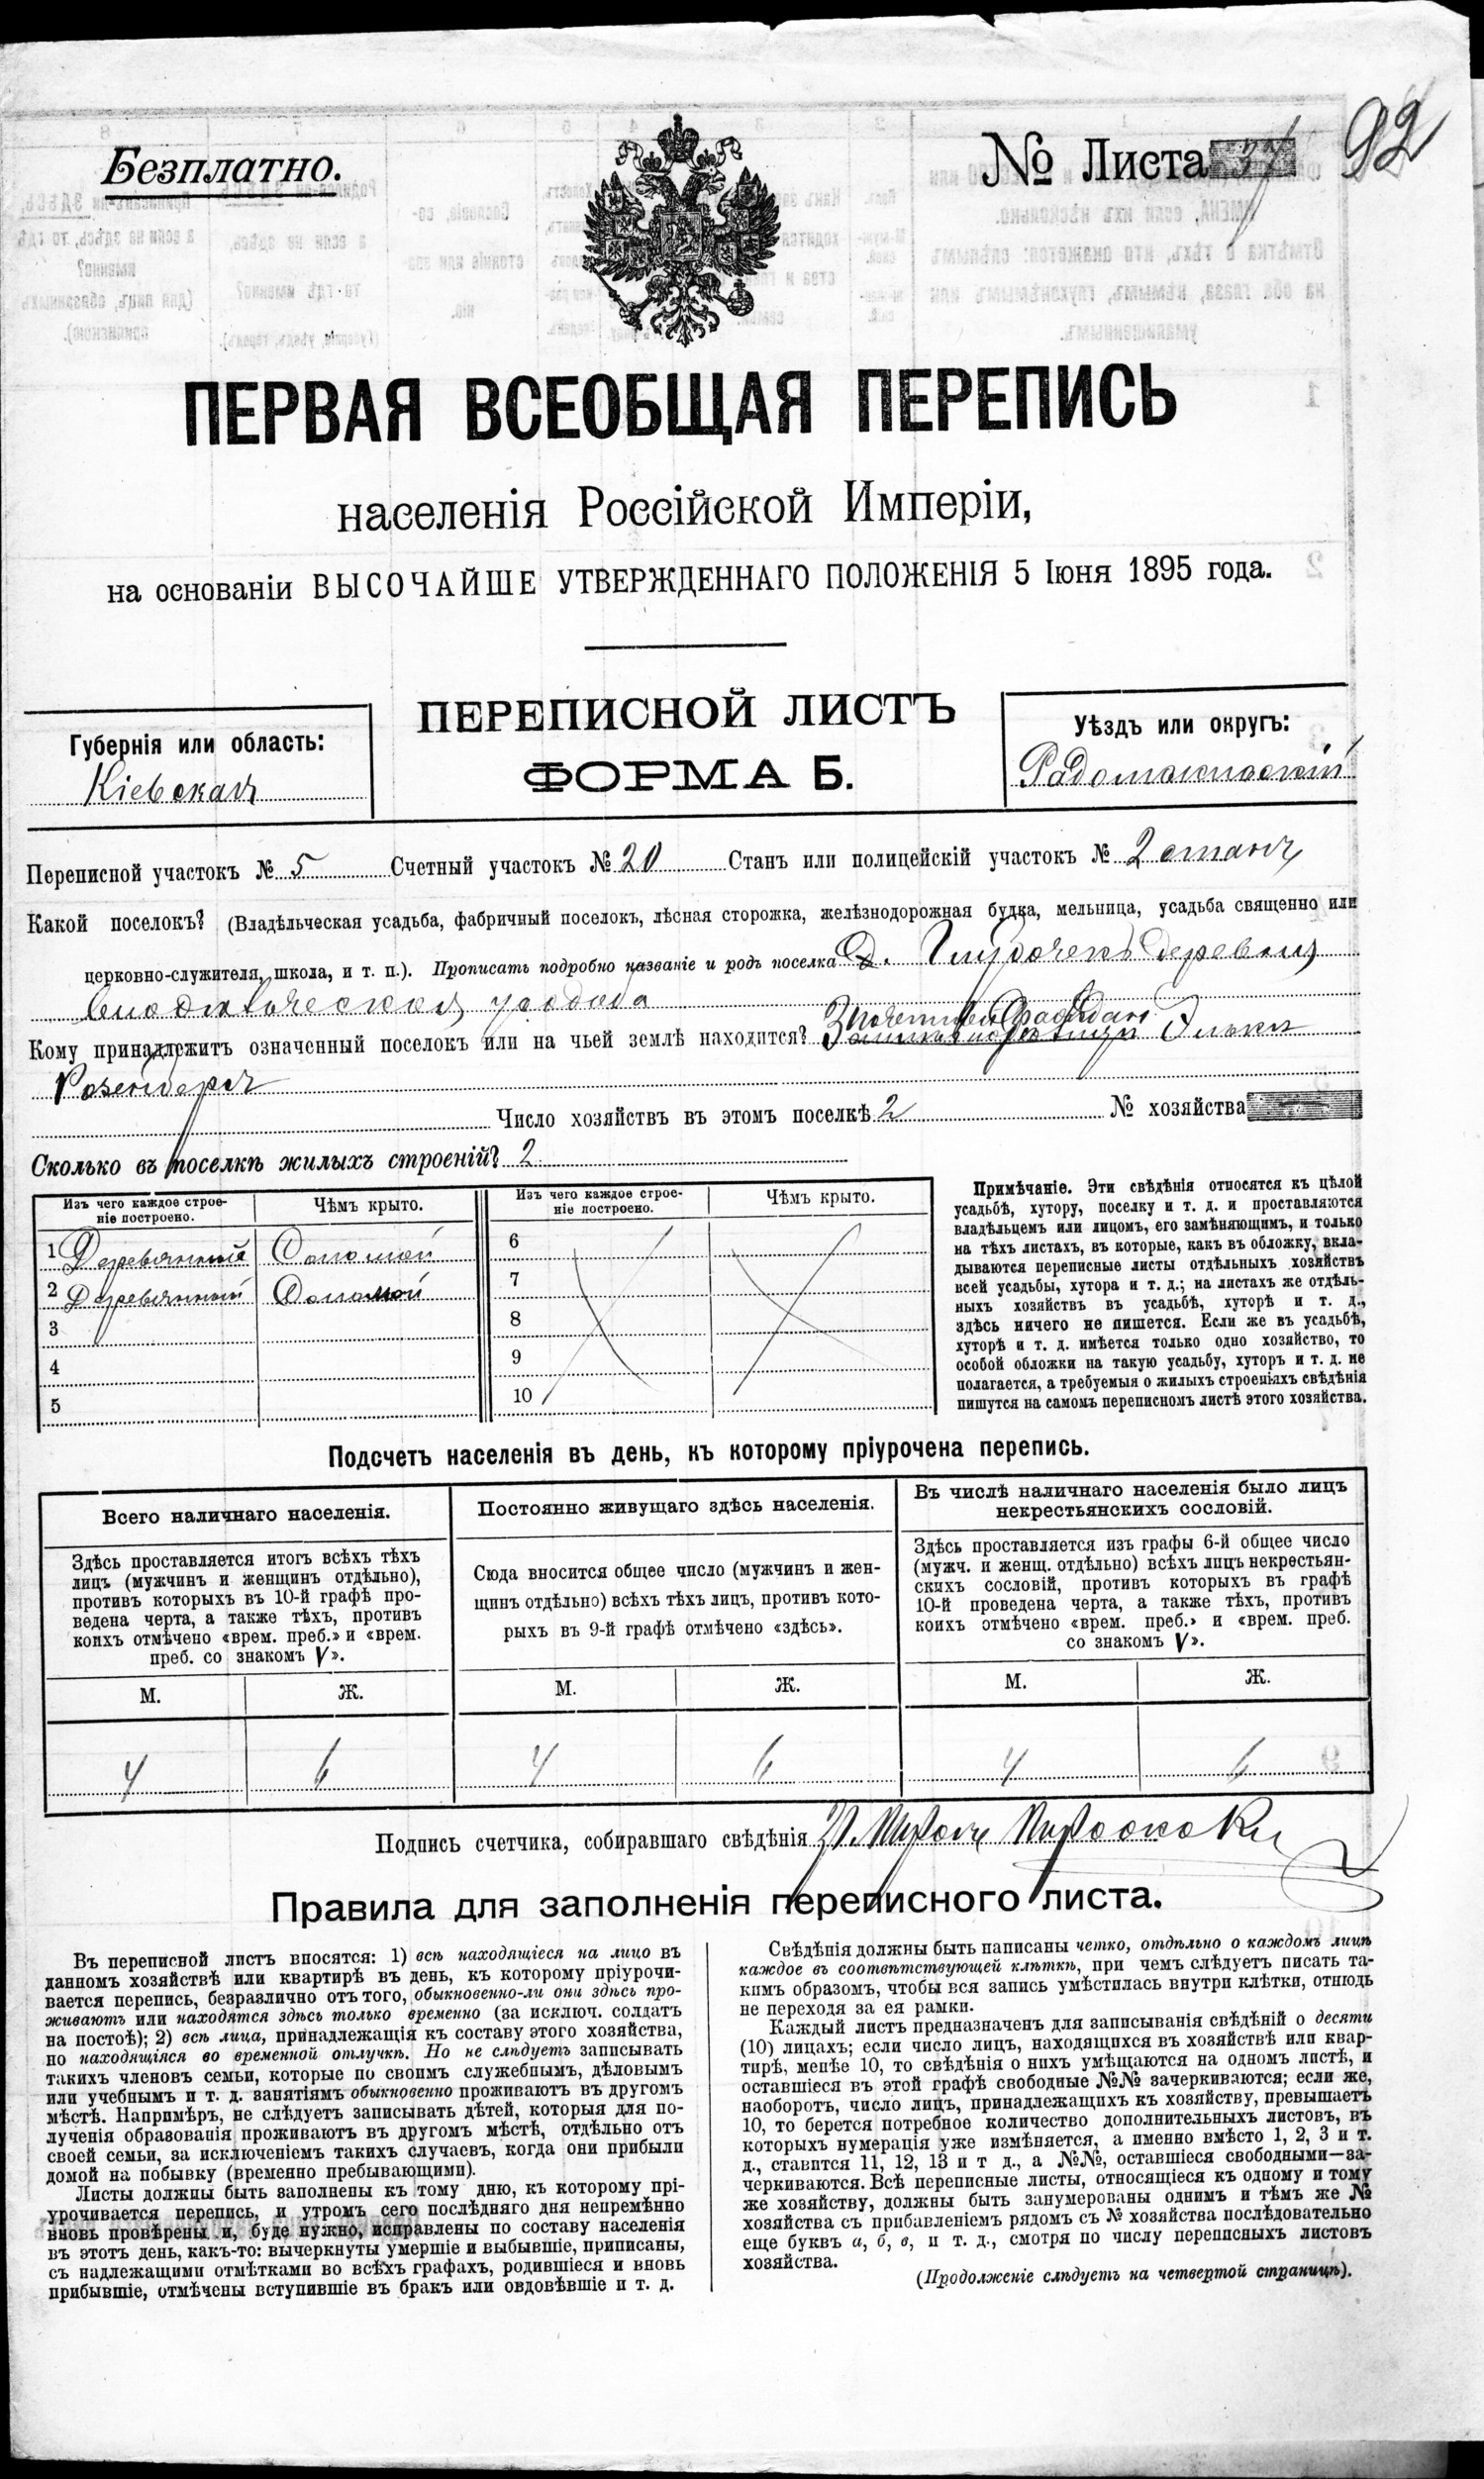 Безплатно.
№ Листа 37
92
ПЕРВАЯ ВСЕОБЩАЯ ПЕРЕПИСЬ
населенія Россійской Имперіи,
на основаніи ВЫСОЧАЙШЕ УТВЕРЖДЕННАГО ПОЛОЖЕНІЯ 5 Іюня 1895 года.
ПЕРЕПИСНОЙ ЛИСТЪ
ФОРМА Б.
Губернія или область:
Кіевская
Уѣздъ или округъ:
Радомысльскій
Переписной участокъ № 5 Счетный участокъ № 20 Станъ или полицейскій участокъ № 2 станъ
Какой поселокъ? (Владѣльческая усадьба, фабричный поселокъ, лѣсная сторожка, желѣзнодорожная будка, мельница, усадьба священно или
церковно-служителя, школа, и т. п.). Прописать подробно названіе и родъ поселка д. деревня
владѣльческая усадьба
Кому принадлежитъ означенный поселокъ или на чьей землѣ находится?
Розенберга
Число хозяйствъ въ этомъ поселкѣ 2 № хозяйства
Сколько въ поселкѣ жилыхъ строеній? 2
Изъ чего каждое строе-
ніе построено.
Чѣмъ крыто.
Изъ чего каждое строе-
ніе построено.
Чѣмъ крыто.
1 Деревянный Соломой
2 Деревянный Соломой
3
4
5
6
7
8
9
10
Примѣчаніе. Эти свѣдѣнія относятся къ цѣлой
усадьбѣ, хутору, поселку и т. д. и проставляются
владѣльцемъ или лицомъ, его замѣняющимъ, и только
на тѣхъ листахъ, въ которые, какъ въ обложку, вкла-
дываются переписные листы отдѣльныхъ хозяйствъ
всей усадьбы, хутора и т. д.; на листахъ же отдѣль-
ныхъ хозяйствъ въ усадьбѣ, хуторѣ и т. д.,
здѣсь ничего не пишется. Если же въ усадьбѣ,
хуторѣ и т. д. имѣется только одно хозяйство, то
особой обложки на такую усадьбу, хуторъ и т. д. не
полагается, а требуемыя о жилыхъ строеніяхъ свѣдѣнія
пишутся на самомъ переписномъ листѣ этого хозяйства.
Подсчетъ населенія въ день, къ которому пріурочена перепись.
Всего наличнаго населенія.
Здѣсь проставляется итогъ всѣхъ тѣхъ
лицъ (мужчинъ и женщинъ отдѣльно),
противъ которыхъ въ 10-й графѣ про-
ведена черта, а также тѣхъ, противъ
коихъ отмѣчено «врем. преб.» и «врем.
преб. со знакомъ V».
М. Ж.
4 6
Постоянно живущаго здѣсь населенія.
Сюда вносится общее число (мужчинъ и жен-
щинъ отдѣльно) всѣхъ тѣхъ лицъ, противъ кото-
рыхъ въ 9-й графѣ отмѣчено «здѣсь».
М. Ж.
4 6
Въ числѣ наличнаго населенія было лицъ
некрестьянскихъ сословій.
Здѣсь проставляется изъ графы 6-й общее число
(мужч. и женщ. отдѣльно) всѣхъ лицъ некрестьян-
скихъ сословій, противъ которыхъ въ графѣ
10-й проведена черта, а также тѣхъ, противъ
коихъ отмѣчено «врем. преб.» и «врем. преб.
со знакомъ V».
М. Ж.
4 6
Подпись счетчика, собиравшаго свѣдѣнія
Правила для заполненія переписного листа.
Въ переписной листъ вносятся: 1) всѣ находящіеся на лицо въ
данномъ хозяйствѣ или квартирѣ въ день, къ которому пріурочи-
вается перепись, безразлично отъ того, обыкновенно-ли они здѣсь про-
живаютъ или находятся здѣсь только временно (за исключ. солдатъ
на постоѣ); 2) всѣ лица, принадлежащія къ составу этого хозяйства,
но находящіяся во временной отлучкѣ. Но не слѣдуетъ записывать
такихъ членовъ семьи, которые по своимъ служебнымъ, дѣловымъ
или учебнымъ и т. д. занятіямъ обыкновенно проживаютъ въ другомъ
мѣстѣ. Напримѣръ, не слѣдуетъ записывать дѣтей, которыя для по-
лученія образованія проживаютъ въ другомъ мѣстѣ, отдѣльно отъ
своей семьи, за исключеніемъ такихъ случаевъ, когда они прибыли
домой на побывку (временно пребывающими).
Листы должны быть заполнены къ тому дню, къ которому прі-
урочивается перепись, и утромъ сего послѣдняго дня непремѣнно
вновь провѣрены и, буде нужно, исправлены по составу населенія
въ этотъ день, какъ-то: вычеркнуты умершіе и выбывшіе, приписаны,
съ надлежащими отмѣтками во всѣхъ графахъ, родившіеся и вновь
прибывшіе, отмѣчены вступившіе въ бракъ или овдовѣвшіе и т. д.
Свѣдѣнія должны быть написаны четко, отдѣльно о каждомъ лицѣ
каждое въ соотвѣтствующей клѣткѣ, при чемъ слѣдуетъ писать та-
кимъ образомъ, чтобы вся запись умѣстилась внутри клѣтки, отнюдь
не переходя за ея рамки.
Каждый листъ предназначенъ для записыванія свѣдѣній о десяти
(10) лицахъ; если число лицъ, находящихся въ хозяйствѣ или квар-
тирѣ, менѣе 10, то свѣдѣнія о нихъ умѣщаются на одномъ листѣ, и
оставшіеся въ этой графѣ свободные №№ зачеркиваются; если же,
наоборотъ, число лицъ, принадлежащихъ къ хозяйству, превышаетъ
10, то берется потребное количество дополнительныхъ листовъ, въ
которыхъ нумерація уже измѣняется, а именно вмѣсто 1, 2, 3 и т.
д., ставится 11, 12, 13 и т д., а №№, оставшіеся свободными—за-
черкиваются. Всѣ переписные листы, относящіеся къ одному и тому
же хозяйству, должны быть занумерованы однимъ и тѣмъ же №
хозяйства съ прибавленіемъ рядомъ съ № хозяйства послѣдовательно
еще буквъ а, б, в, и т. д., смотря по числу переписныхъ листовъ
хозяйства.
(Продолженіе слѣдуетъ на четвертой страницѣ).